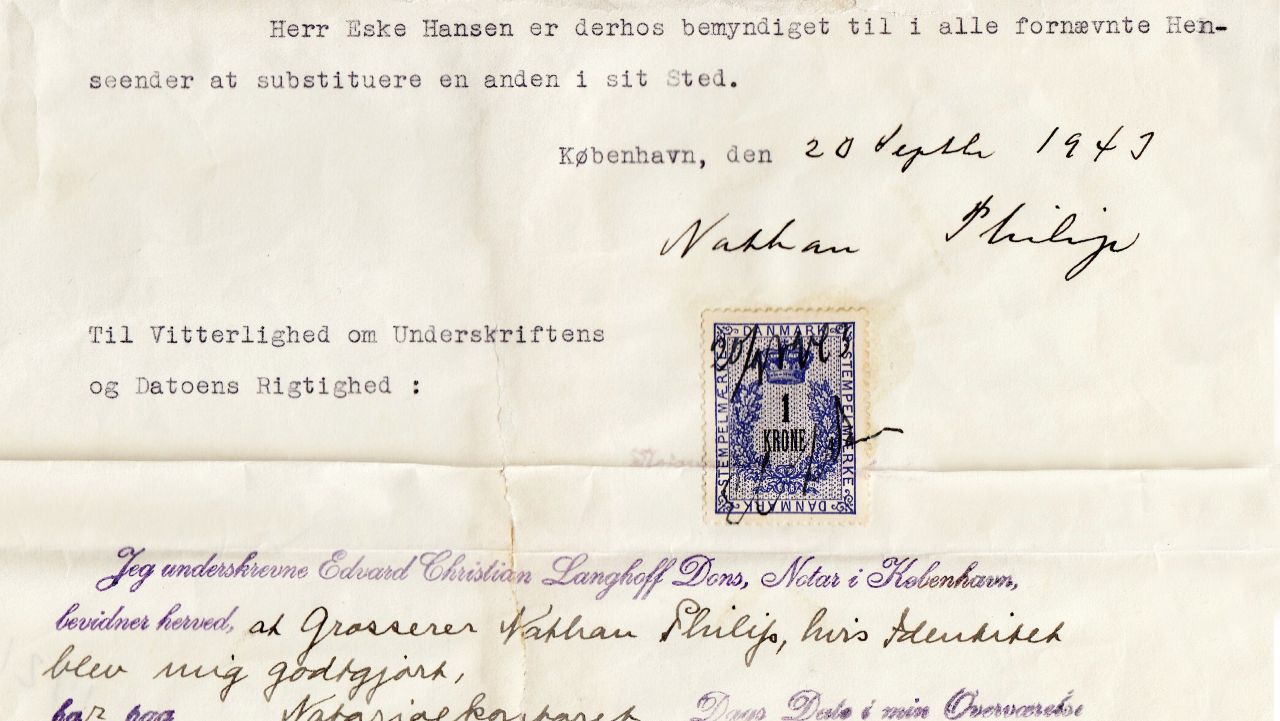 Herr Eske Hansen er derhos bemyndiget til i alle fornævnte Hen-
seender at substituere en anden i sit Sted.
København, den 20 Septbr 1943
Nathan Philip
Til Vitterlighed om Underskriftens
og Datoens Rigtighed :
DANMARK
STEMPELMÆRKE
STEMPELMÆRKE
1
KRONE
DANMARK
Jeg underskrevne Edvard Christian Langhoff Dons, Notar i København,
bevidner herved, at Grosserer Nathan Philip, hvis Identitet
blev mig godtgjort,
har paa Notarialkontoret Dags Dato i min Overværelse